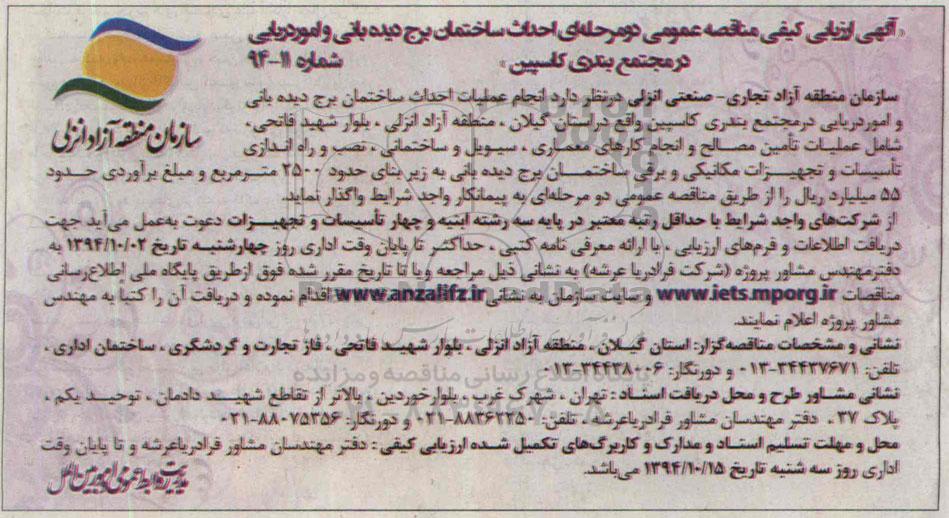 « آگهی ارزیابی کیفی مناقصه عمومی دومرحله‌ای احداث ساختمان برج دیده بانی و اموردریایی
درمجتمع بندری کاسپین » شماره ۱۱-۹۴
سازمان منطقه آزاد انزلی
سازمان منطقه آزاد تجاری- صنعتی انزلی درنظر دارد انجام عملیات احداث ساختمان برج دیده بانی
و اموردریایی درمجتمع بندری کاسپین واقع در استان گیلان ، منطقه آزاد انزلی ، بلوار شهید فاتحی،
شامل عملیات تأمین مصالح و انجام کارهای معماری ، سیویل و ساختمانی ، نصب و راه اندازی
تأسیسات و تجهیزات مکانیکی و برقی ساختمان برج دیده بانی به زیر بنای حدود ۲۵۰۰ مترمربع و مبلغ برآوردی حدود
۵۵ میلیارد ریال را از طریق مناقصه عمومی دو مرحله‌ای به پیمانکار واجد شرایط واگذار نماید.
از شرکت‌های واجد شرایط با حداقل رتبه معتبر در پایه سه رشته ابنیه و چهار تأسیسات و تجهیزات دعوت به‌عمل می‌آید جهت
دریافت اطلاعات و فرم‌های ارزیابی ، با ارائه معرفی نامه کتبی ، حداکثر تا پایان وقت اداری روز چهارشنبه تاریخ ۱۳۹۴/۱۰/۰۲ به
دفترمهندس مشاور پروژه (شرکت فرادریا عرشه) به نشانی ذیل مراجعه ویا تا تاریخ مقرر شده فوق ازطریق پایگاه ملی اطلاع‌رسانی
مناقصات www.iets.mporg.ir و سایت سازمان به نشانی www.anzalifz.ir اقدام نموده و دریافت آن را کتبا به مهندس
مشاور پروژه اعلام نمایند.
نشانی و مشخصات مناقصه‌گزار: استان گیلان ، منطقه آزاد انزلی ، بلوار شهید فاتحی ، فاز تجارت و گردشگری ، ساختمان اداری ،
تلفن: ۳۴۴۳۷۶۷۱-۰۱۳ و دورنگار: ۳۴۴۳۸۰۰۶-۰۱۳
نشانی مشاور طرح و محل دریافت اسناد : تهران ، شهرک غرب ، بلوارخوردین ، بالاتر از تقاطع شهید دادمان ، توحید یکم ،
پلاک ۳۷ ، دفتر مهندسان مشاور فرادریاعرشه ، تلفن: ۸۸۳۶۲۲۵۰-۰۲۱ و دورنگار: ۸۸۰۷۵۳۵۶-۰۲۱
محل و مهلت تسلیم اسناد و مدارک و کاربرگ‌های تکمیل شده ارزیابی کیفی : دفتر مهندسان مشاور فرادریاعرشه و تا پایان وقت
اداری روز سه شنبه تاریخ ۱۳۹۴/۱۰/۱۵ می‌باشد.
مدیریت روابط عمومی و امور بین الملل